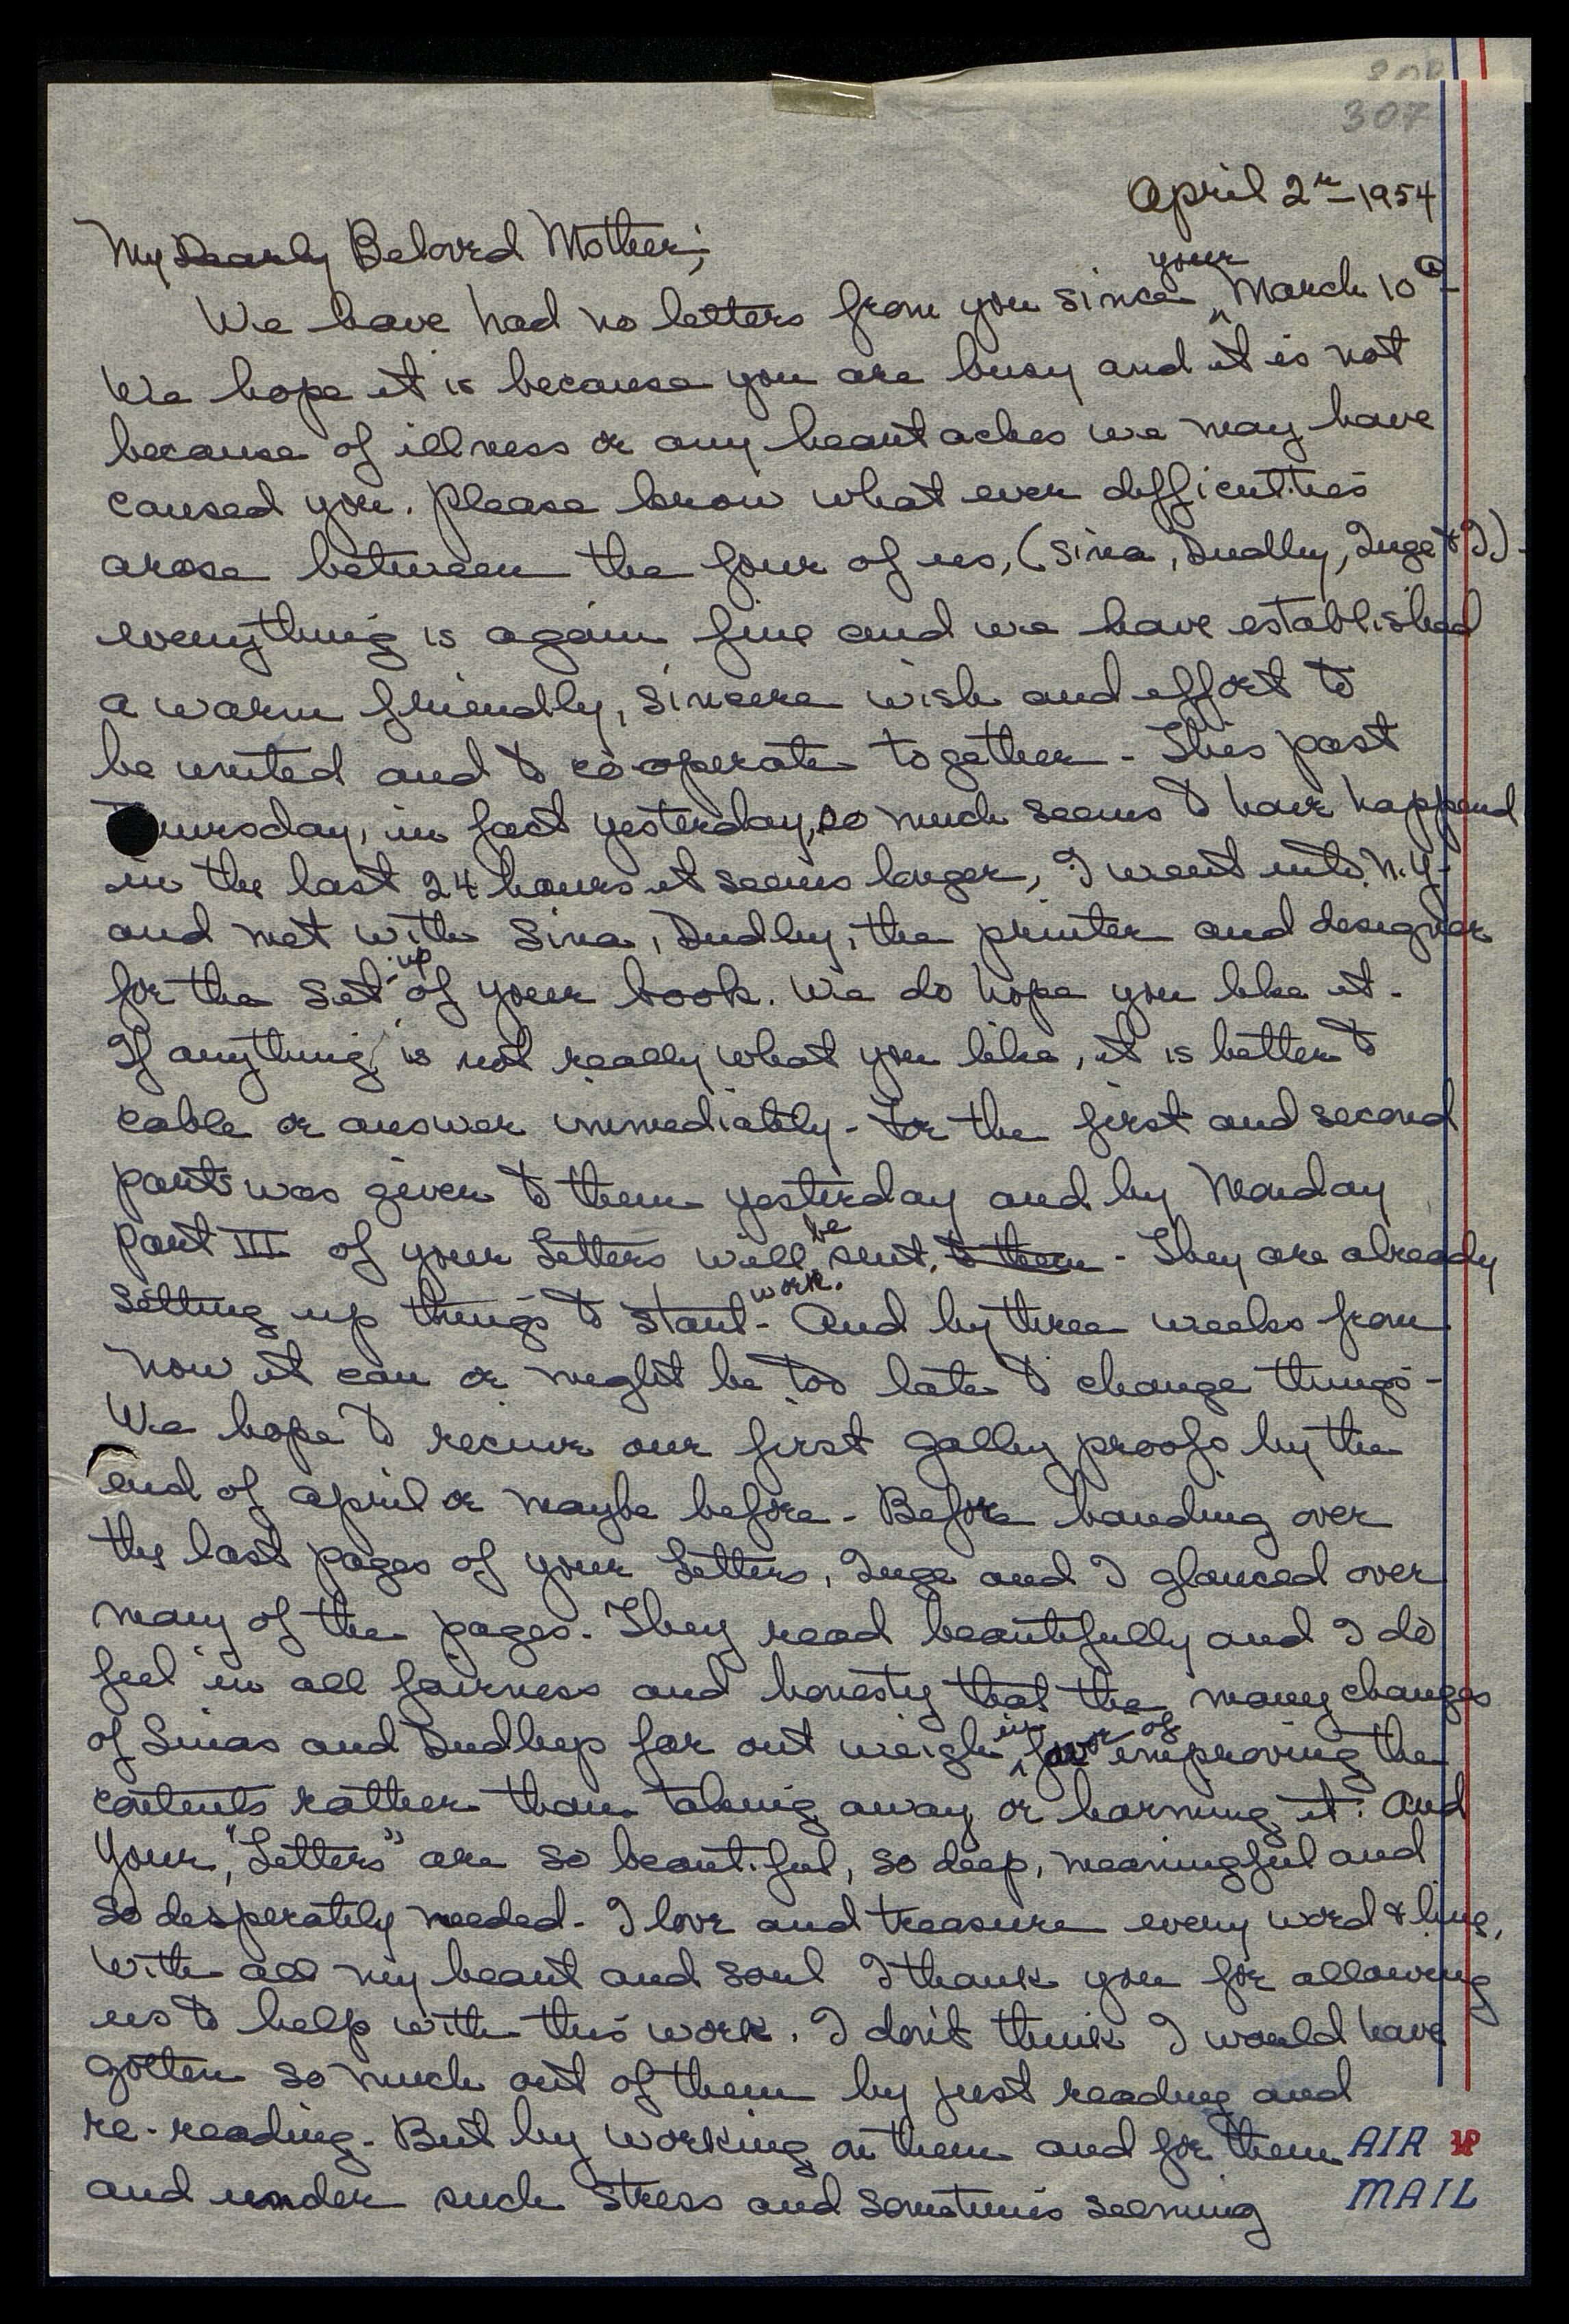 308
307
April 2nd - 1954
My Dearly Beloved Mother;
your
We have had no letters from you since March 10th -
We hope it is because you are busy and it is not
because of illness or any heart aches we may have
caused you. Please know what ever difficulties
arose between the four of us, (Sina, Dudley, Inge & I) -
everything is again fine and we have established
a warm friendly, sincere wish and effort to
be united and to co-operate together - This past
Thursday, in fact yesterday, so much seems to have happend
in the last 24 hours it seems longer, I went into N.Y.
and met with Sina, Dudley, the printer and designer
up
for the set of your book. We do hope you like it -
If anything is not really what you like, it is better to
cable or answer immediately - For the first and second
parts was given to them yesterday and by Monday
be
part III of your Letters will sent, to them - They are already
work.
setting up things to start - And by three weeks from
now it can or might be too late to change things -
We hope to receive our first galley proofs by the
end of April or maybe before - Before handing over
the last pages of your Letters, Inge and I glanced over
many of the pages. They read beautifully and I do
feel in all fairness and honesty that the many changes
in of
of Sinas and Dudleys far out weigh favor improving the
contents rather than taking away or harming it. And
your, "Letters" are so beautiful, so deep, meaningful and
so desperately needed - I love and treasure every word & line,
With all my heart and soul I thank you for allowing
us to help with this work. I don't think I would have
gotten so much out of them by just reading and
re-reading - But by working on them and for them
and under such stress and sometimes seeming
AIR
MAIL